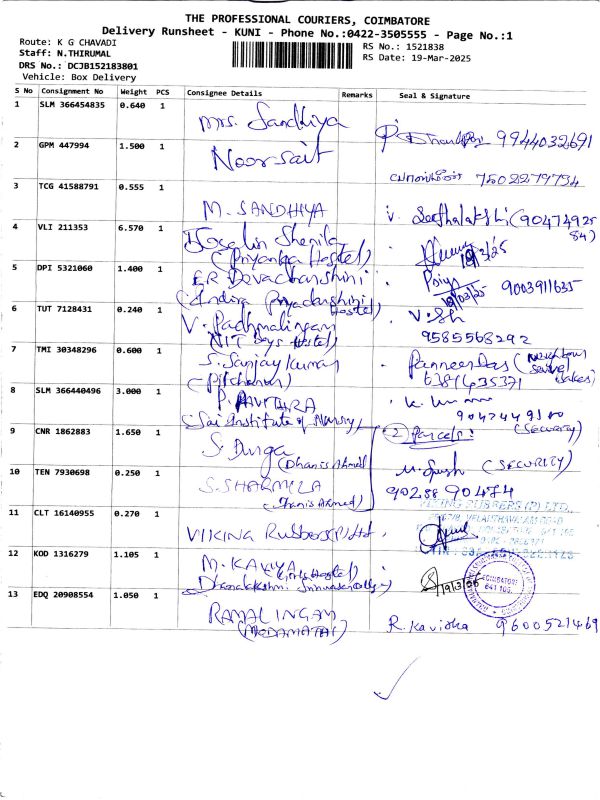 THE PROFESSIONAL COURIERS, COIMBATORE
Delivery Runsheet - KUNI - Phone No.:0422-3505555 - Page No.:1
Route: K G CHAVADI
Staff: N.THIRUMAL
DRS No.: DCJB152183801
Vehicle: Box Delivery
RS No.: 1521838
RS Date: 19-Mar-2025
S No Consignment No Weight PCS Consignee Details Remarks Seal & Signature
1 SLM 366454835 0.640 1 Mrs. Sandhiya
9944032691
2 GPM 447994 1.500 1 Noorsait
7502279734
3 TCG 41588791 0.555 1 M. SANDHIYA
V. Seethalakshi (9047492584)
4 VLI 211353 6.570 1
(Priyanka Hostel)
19/3/25
5 DPI 5321060 1.400 1 ER Devadharshini
(Indira Priyadarshini Hostel)
Priya 19/03/25 9003911635
6 TUT 7128431 0.240 1 V. Padhmalingam
NIT Boys Hostel)
V. Sh
9585568292
7 TMI 30348296 0.600 1 S. Sanjay Kumar
(Pitchanur)
8 SLM 366440496 3.000 1 P. PAVITHRA
(Sai Institute of Nursing)
(Security)
9 CNR 1862883 1.650 1 S. Durga
(Dhanis Ahmed
(2) Parcels:
10 TEN 7930698 0.250 1 S. SHARMILA
(SECURITY)
90288 90474
11 CLT 16140955 0.270 1 VIKING Rubbers (P) Ltd.
12 KOD 1316279 1.105 1 M. KAVIYA
(Girls Hostel)
COIMBATORE
641 105
13 EDQ 20908554 1.050 1 RAMALINGAM
(MODAMATHI)
R. Kavisha 9600521469